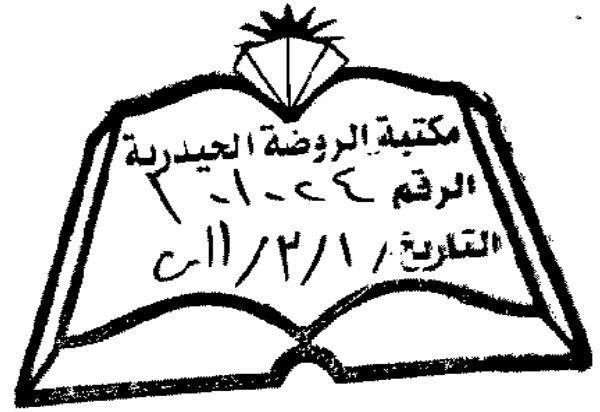 مكتبة الروضة الحيدرية
الرقم
التاريخ / ١ / ٣ / ١١